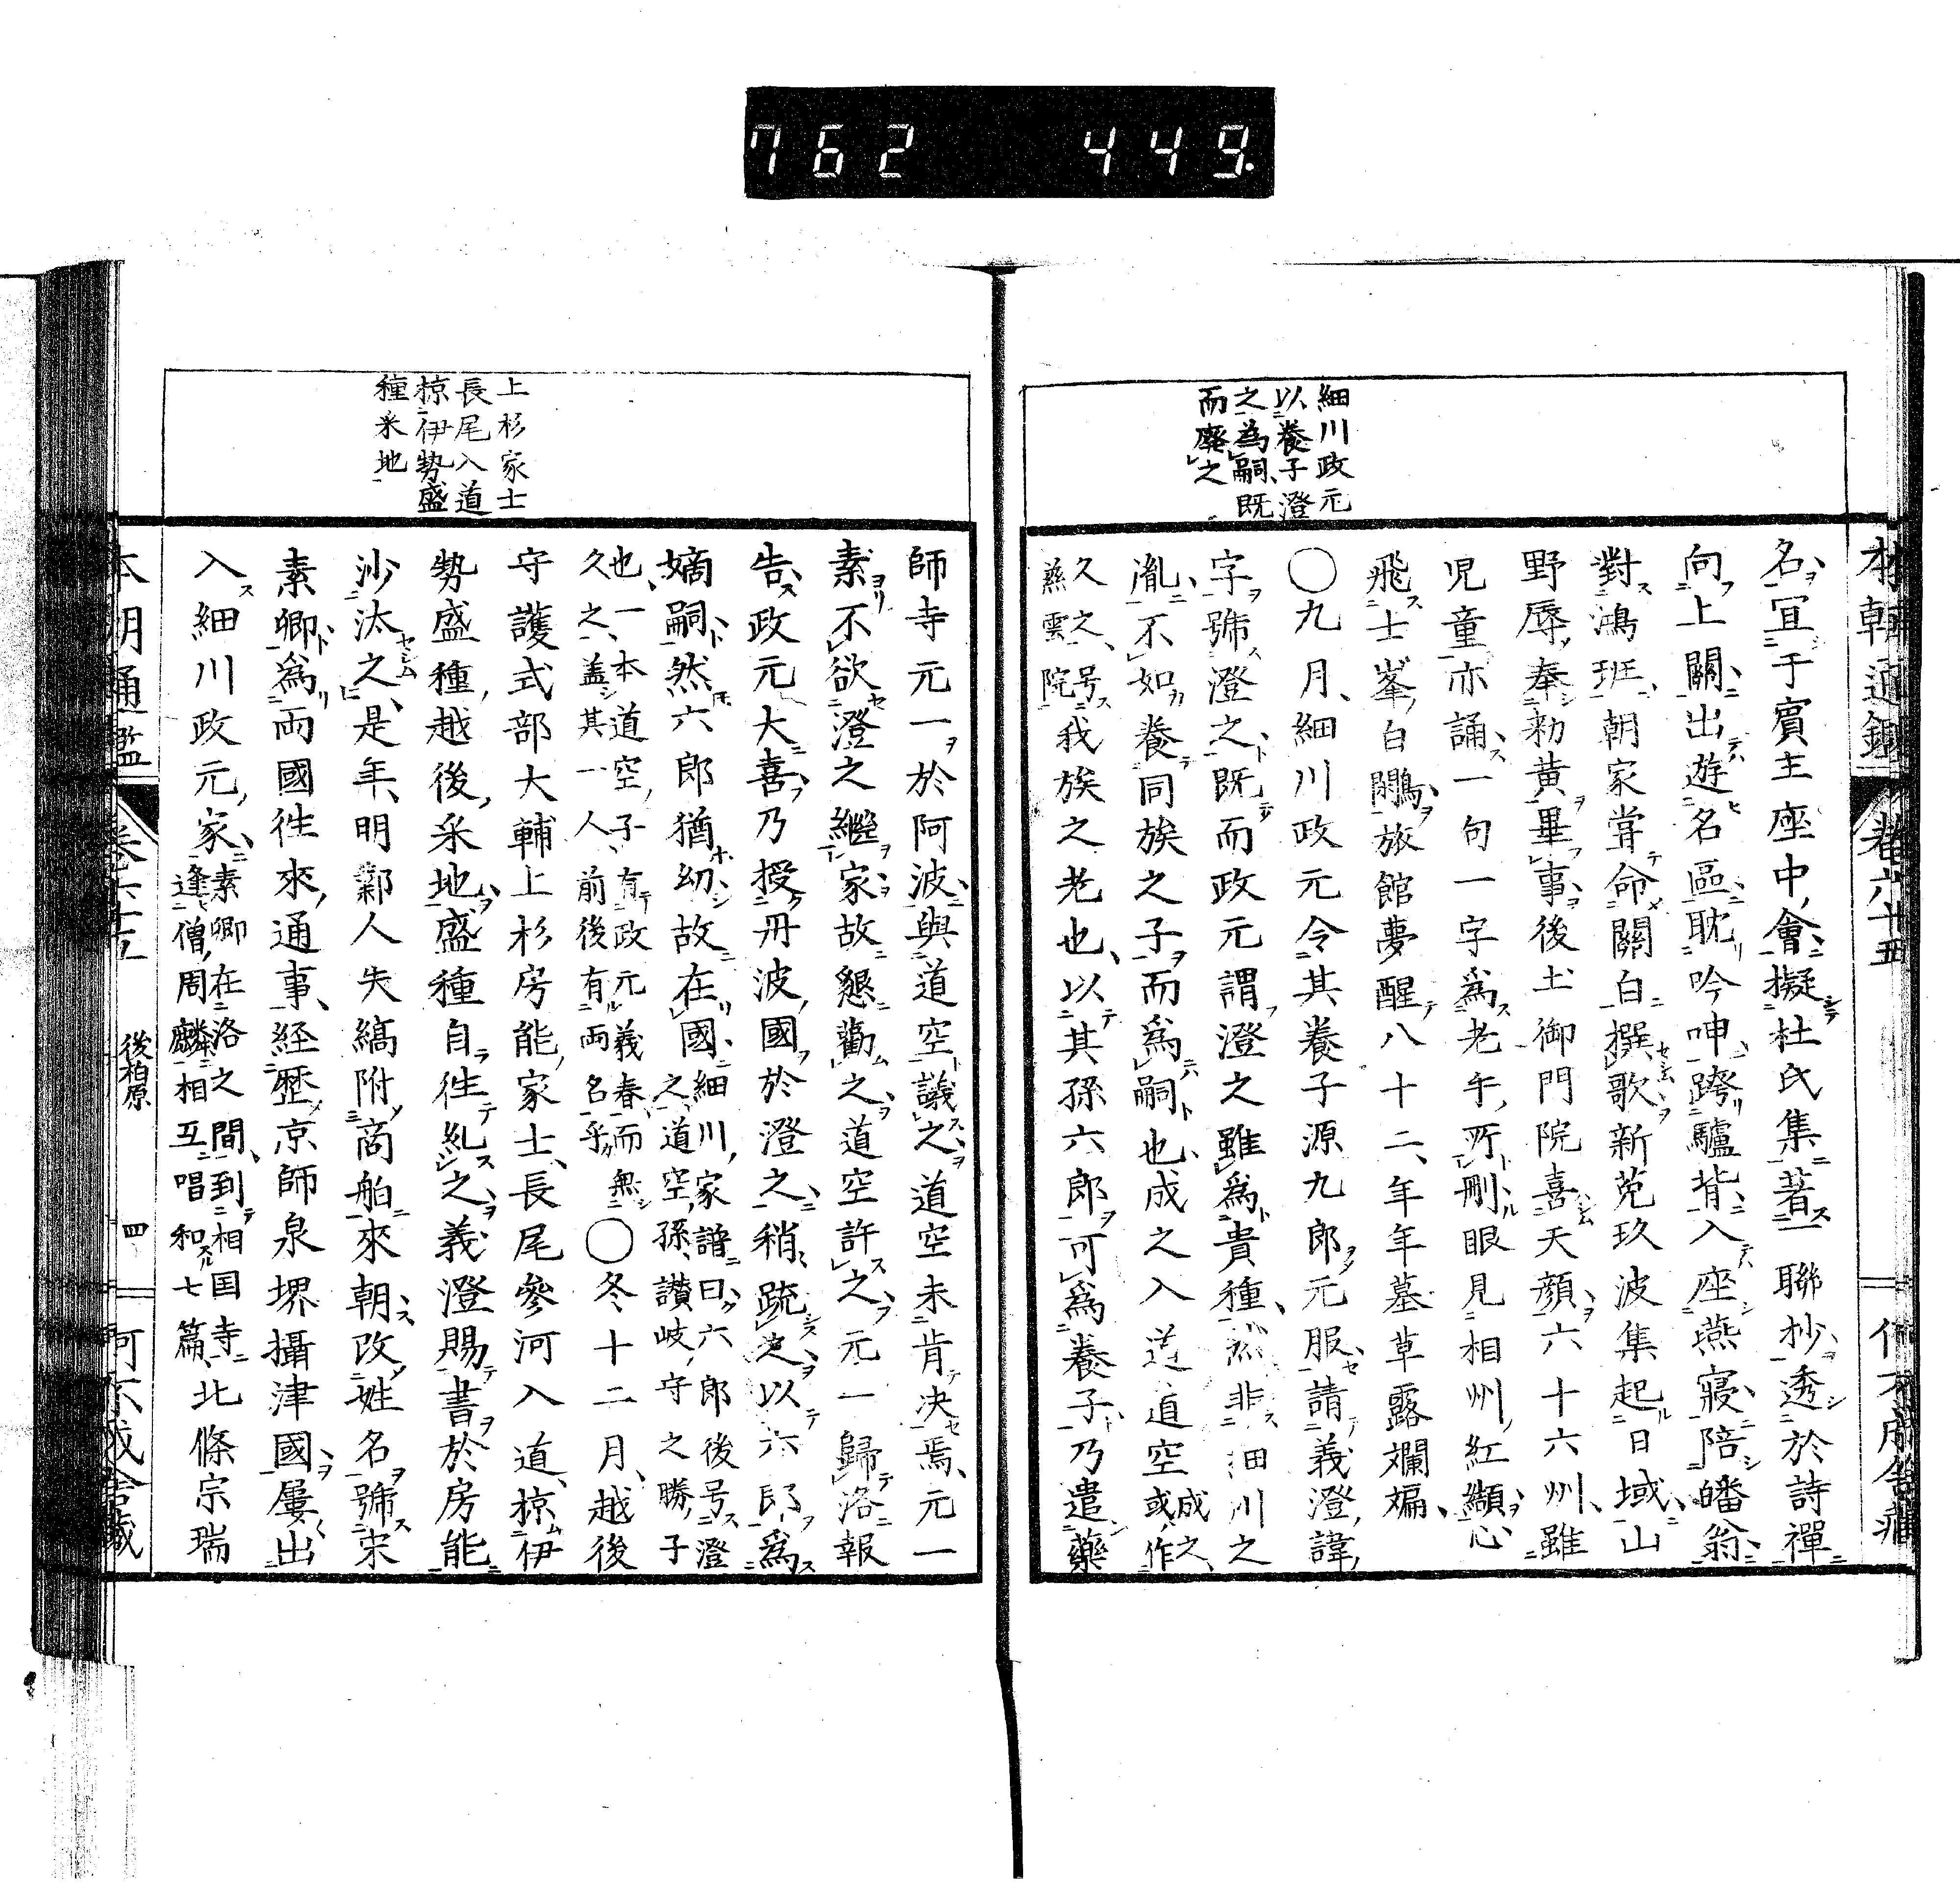 762 449.
本朝通鑑 卷六十五
細川政元
以養子澄
之為嗣既
而廢之
名宜于賓主座中會擬杜氏集著聯杪透於詩禪
向上關出遊名區耽吟呻跨驢背入座燕寢陪皤翁
對鴻班朝家甞命關白撰歌新莵玖波集起日域山
野辱奉勑黄畢事後土御門院喜天顔六十六州雖
児童亦誦一句一字為老午所刪眼見相州紅纈心
飛士峯白鷴旅館夢醒八十二年年墓草露斕斒
〇九月細川政元令其養子源九郎元服請義澄諱
字號澄之既而政元謂澄之雖為貴種然非細川之
胤不如養同族之子而為嗣也成之入道道空成之或作
久之号慈雲院我族之老也以其孫六郎可為養子乃遣藥
上杉家士
長尾入道
掠伊勢盛
種釆地
師寺元一於阿波與道空議之道空未肯决焉元一
素不欲澄之繼家故懇勸之道空許之元一歸洛報
告政元大喜乃授丹波國於澄之稍疏之以六郎為
嫡嗣然六郎猶幼故在國細川家譜曰六郎後号澄之道空孫讃岐守之勝子
也一本道空子有政元義春而無久之盖其一人前後有両名乎〇冬十二月越後
守護式部大輔上杉房能家士長尾參河入道掠伊
勢盛種越後釆地盛種自徃糺之義澄賜書於房能
沙汰之是年明鄞人失縞附商舶來朝改姓名號宋
素卿為両國徃來通事経歴京師泉堺攝津國屢出
入細川政元家素卿在洛之間到相国寺逢僧周麟相互唱和七篇北條宗瑞
本朝通鑑 卷六十五 後柏原 四